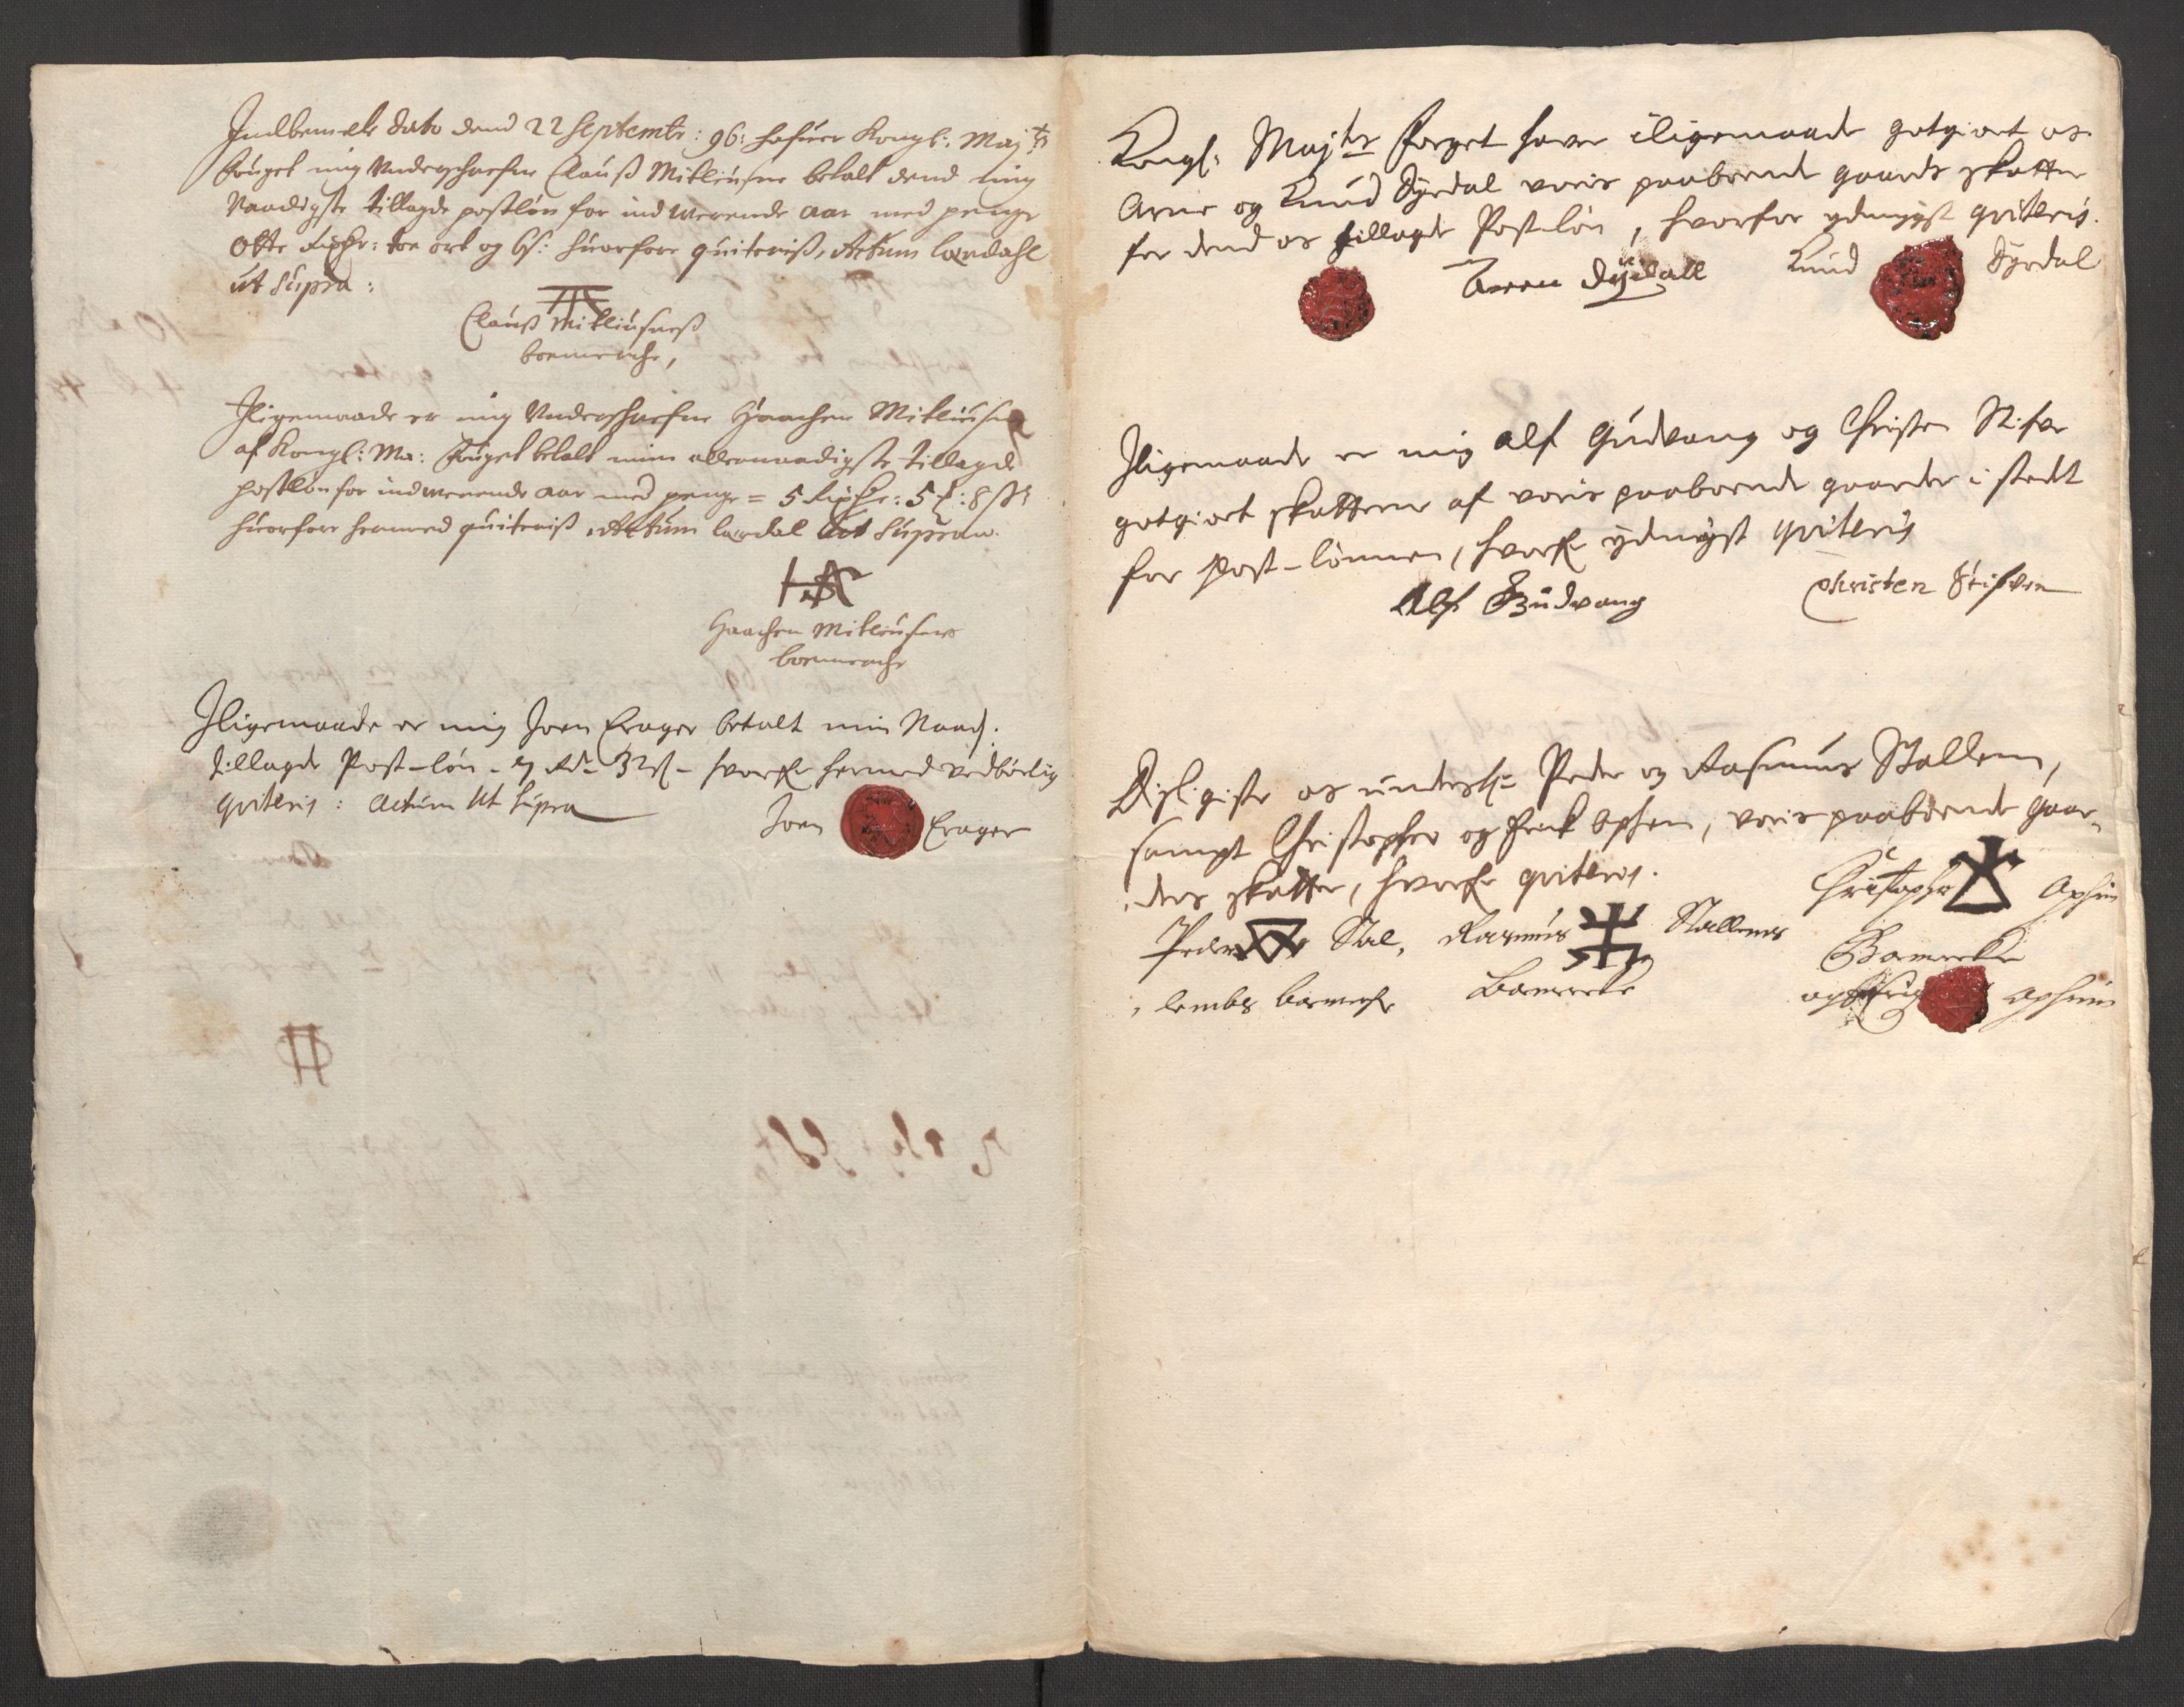 Indbemelte dato dend 22 Septembr: 96: hafuer Kongl: Maj:ts
fouget mig Underschrefne Clauß Mikliusne betalt dend mig
Naadigste tillagde postløn for indwerende aar med penge
Otte Rixdr: toe ort og 6s: huorfore quiteriß, Actum Lardahl
ut Supra:
Clauß Mikliusneß
boemerche,
Iligemaade er mig Underschrefne Haachen Mikliusne
af Kongl: Ma: fouget betalt min allernaadigste tillagde
postløn for indwerende aar med penge = 5 Rixdr: 5 : 8 s:
huorfore hermed quiteriß, Actum Lardal Ut Supram.
HA
Haachen Mikliusnes
boemerche
Iligemaade er mig Joen Erager betalt min Naad:
tillagde Post-løn - 7 Rd - 32 s - hvorfor hermed vedbørlig
qviteris: Actum Ut Supra
Joen Erager
Kongl: Majts Foeget haver iligemaade gotgiort os
Arne og Knud Dyrdal voris paaboende gaards skatter
for dend os tillagde Post-løn, hvorfor ydmygst qviteris.
Dyrdall Knud Dyrdal
Iligemaade er mig Alf Gudvang og Christen Stifve
gotgiort skatterne af voris paaboende gaarder i stedt
for Post-lønnen, hvorfor ydmygst qviteris
Alf Gudvang Christen Stifven
Disligiste os undersch: Peder og Rasmus Stallem,
sampt Christopher og Erick Ophem, voris paaboende gaar-
ders skatter, hvorfor qviteris.
Christopher Ophim
Peder Stal, Rasmus Stallems
Bomercke
lembs bomerche Bomercke
og Erig Ophim